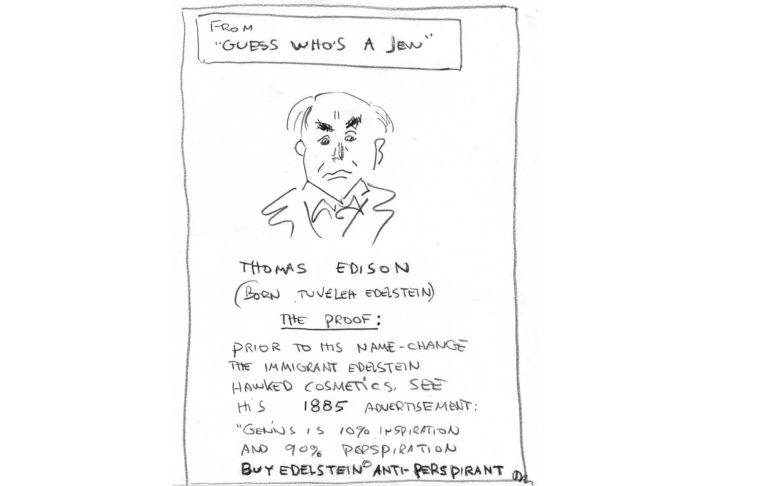 FROM
"GUESS WHO'S A JEW"
THOMAS EDISON
(BORN TUVELEH EDELSTEIN)
THE PROOF:
PRIOR TO HIS NAME-CHANGE
THE IMMIGRANT EDELSTEIN
HAWKED COSMETICS. SEE
HIS 1885 ADVERTISEMENT:
"GENIUS IS 10% INSPIRATION
AND 90% PERSPIRATION
BUY EDELSTEIN© ANTI-PERSPIRANT